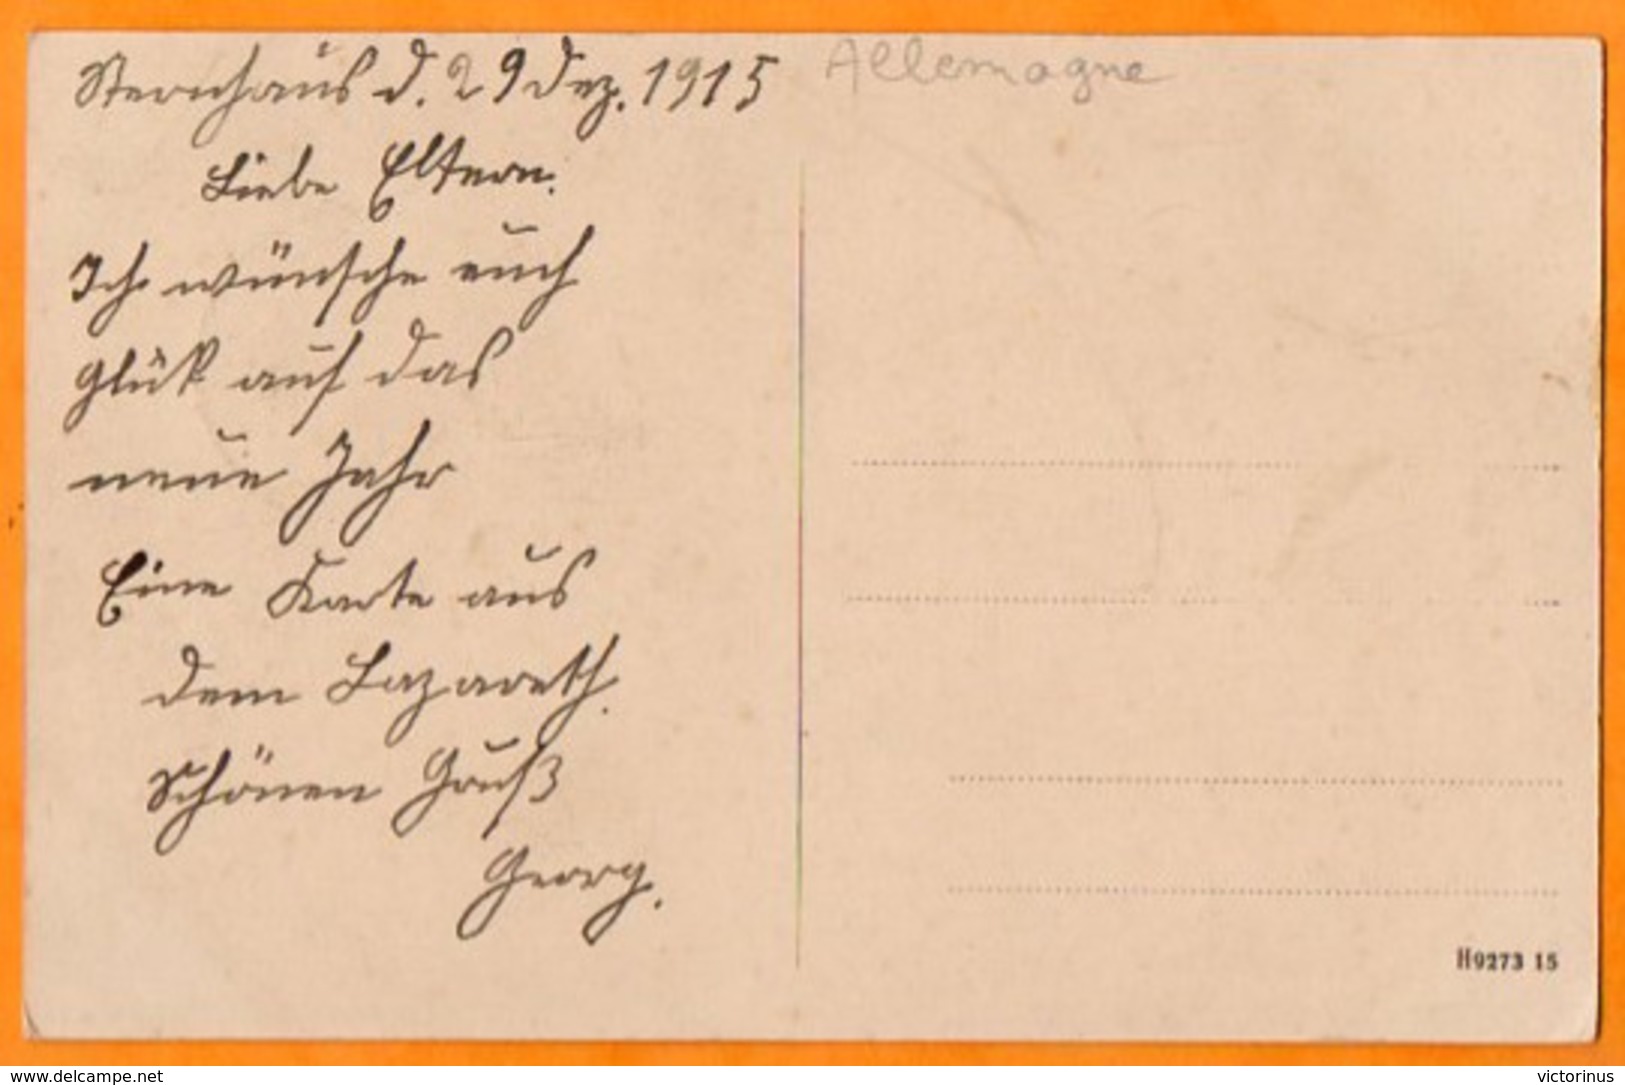 Sternhaus d. 29 Dez. 1915
Allemagne
Liebe Eltern.
Ich wünsche euch
glük auf das
neue Jahr
Eine Karte aus
dem Lazareth.
Schönen Gruß
Georg.
H9273 15
www.delcampe.net
victorinus